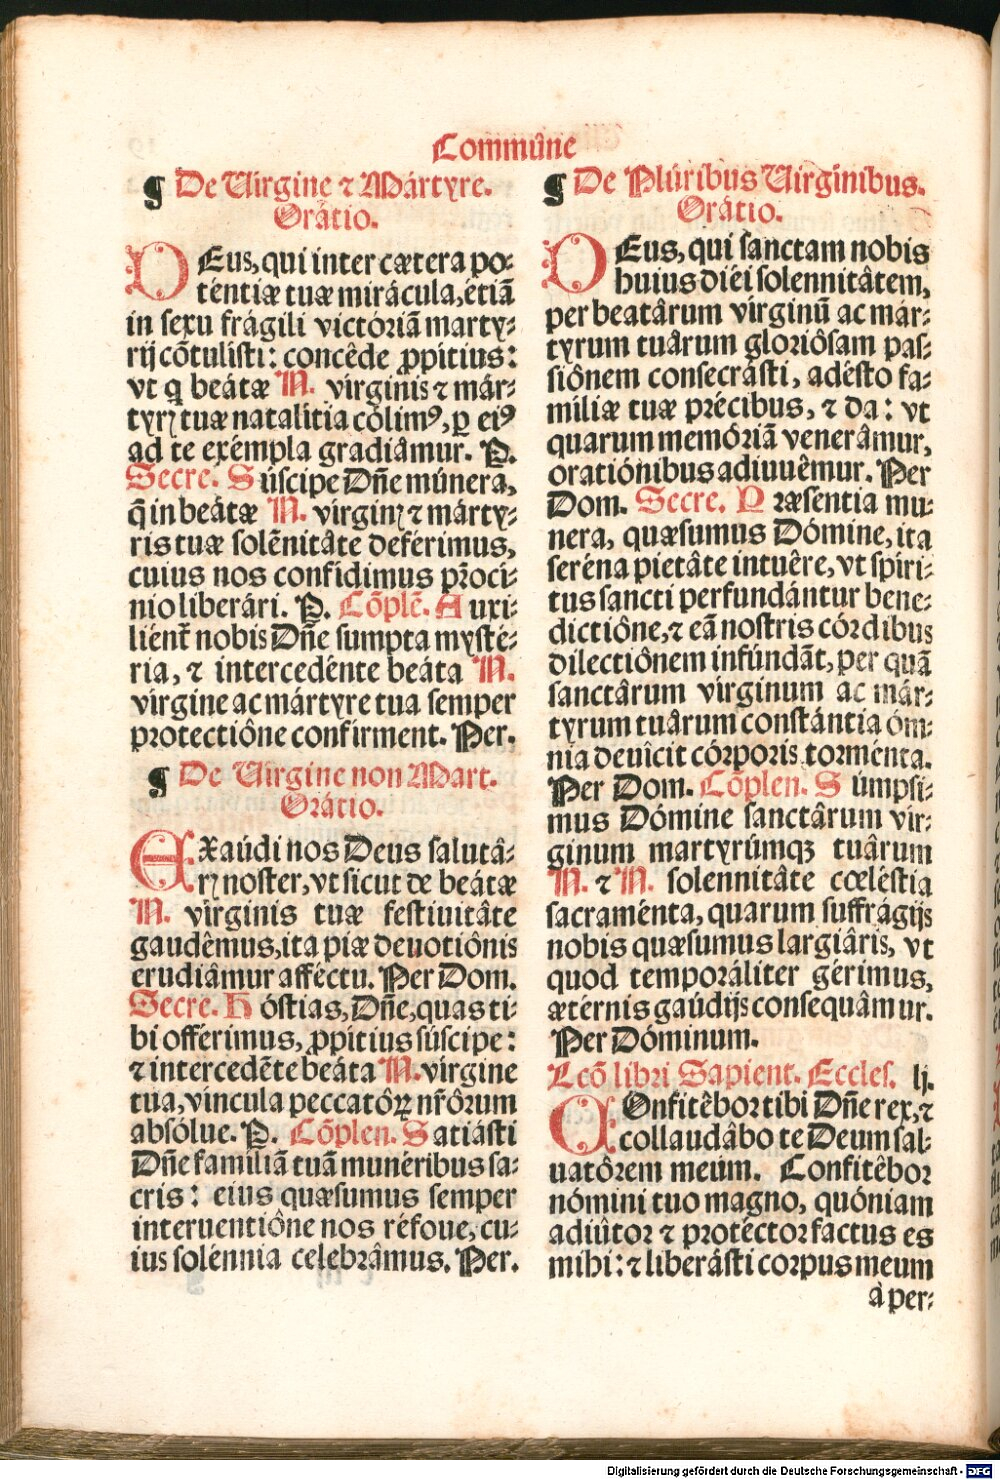 Commûne
¶ De Uirgine ⁊ Mártyre.
Orátio.
DEus, qui inter cætera po⸗
tentiæ tuæ mirácula, étiã
in sexu frágili victóriã marty⸗
rij cõtulisti: concêde ꝓpitius:
vt q beátæ N. virginis ⁊ már⸗
tyrꝭ tuæ natalítia cólimꝰ, ꝑ eiꝰ
ad te exémpla gradiâmur. P.
Secre. Súscipe Dñe múnera,
q̃ in beátæ N. virginꝭ ⁊ márty⸗
ris tuæ solẽnitâte deférimus,
cuius nos confidimus p̃roci⸗
nio liberári. P. Cõplẽ. Auxi⸗
lient̃ nobis Dñe sumpta mysté⸗
ria, ⁊ intercedénte beáta N.
virgine ac mártyre tua semper
protectiône confirment. Per.
¶ De Uirgine non Mart.
Orátio.
EXaúdi nos Deus salutâ⸗
rꝭ noster, vt sicut de beátæ
N. virginis tuæ festiuitâte
gaudêmus, ita piæ deuotiônis
erudiâmur afféctu. Per Dom.
Secre. Hóstias, Dñe, quas ti⸗
bi offérimus, ꝓpitius súscipe:
⁊ intercedẽte beáta N. virgine
tua, vincula peccatóꝝ nr̃ôrum
absólue. P. Cõplen. Satiásti
Dñe famíliã tuã munéribus sa⸗
cris: eius quæsumus semper
interuentiône nos réfoue, cu⸗
ius solénnia celebrâmus. Per.
¶ De Plúribus Uirginibus.
Orátio.
DEus, qui sanctam nobis
huius diéi solennitâtem,
per beatârum vírginũ ac már⸗
tyrum tuârum gloriôsam pas⸗
siônem consecrásti, adésto fa⸗
míliæ tuæ précibus, ⁊ da: vt
quarum memóriã venerâmur,
oratiónibus adiuuêmur. Per
Dom. Secre. Præsentia mu⸗
nera, quæsumus Dómine, ita
serêna pietâte intuêre, vt spíri⸗
tus sancti perfundántur bene⸗
dictiône, ⁊ eã nostris córdibus
dilectiônem infúndãt, per quã
sanctârum vírginum ac már⸗
tyrum tuârum constántia óm⸗
nia deuîcit córporis torménta.
Per Dom. Cõplen. Súmpsi⸗
mus Dómine sanctârum vír⸗
ginum martyrúmqꝫ tuârum
N. ⁊ N. solennitâte cœléstia
sacraménta, quarum suffrágijs
nobis quæsumus largiâris, vt
quod temporáliter gérimus,
ætérnis gaúdijs consequâmur.
Per Dóminum.
Lcõ libri Sapient. Eccles. lj.
COnfitêbor tibi Dñe rex, ⁊
collaudâbo te Deum sal⸗
uatôrem meum. Confitêbor
nómini tuo magno, quóniam
adiûtor ⁊ protéctor factus es
mihi: ⁊ liberásti corpus meum
à per⸗
Digitalisierung gefördert durch die Deutsche Forschungsgemeinschaft - DFG